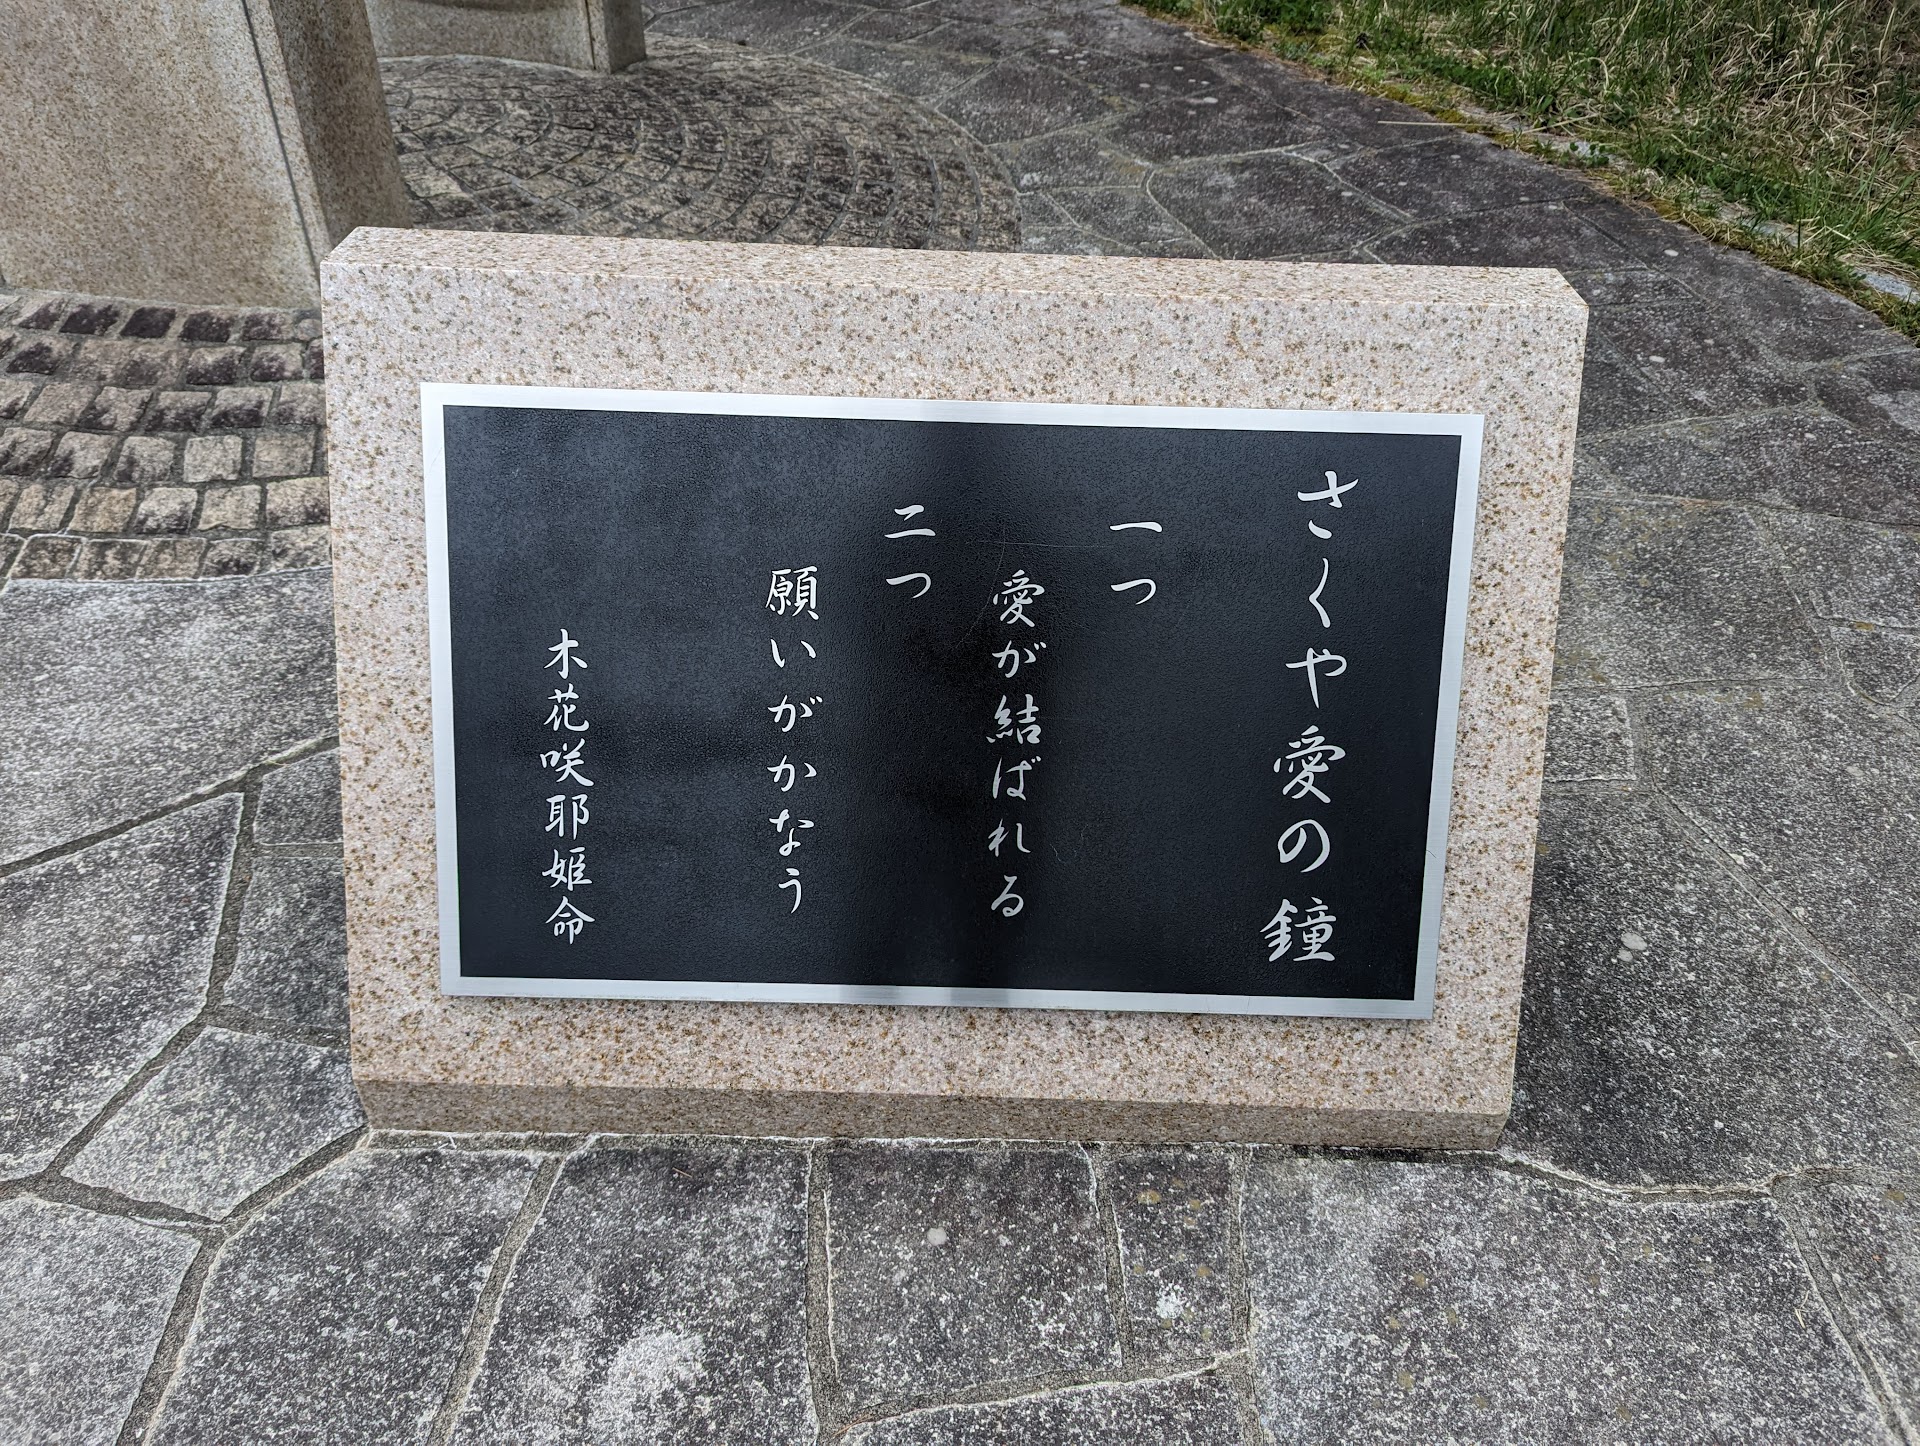 さくや愛の鐘
一つ
愛が結ばれる
二つ
願いがかなう
木花咲耶姫命